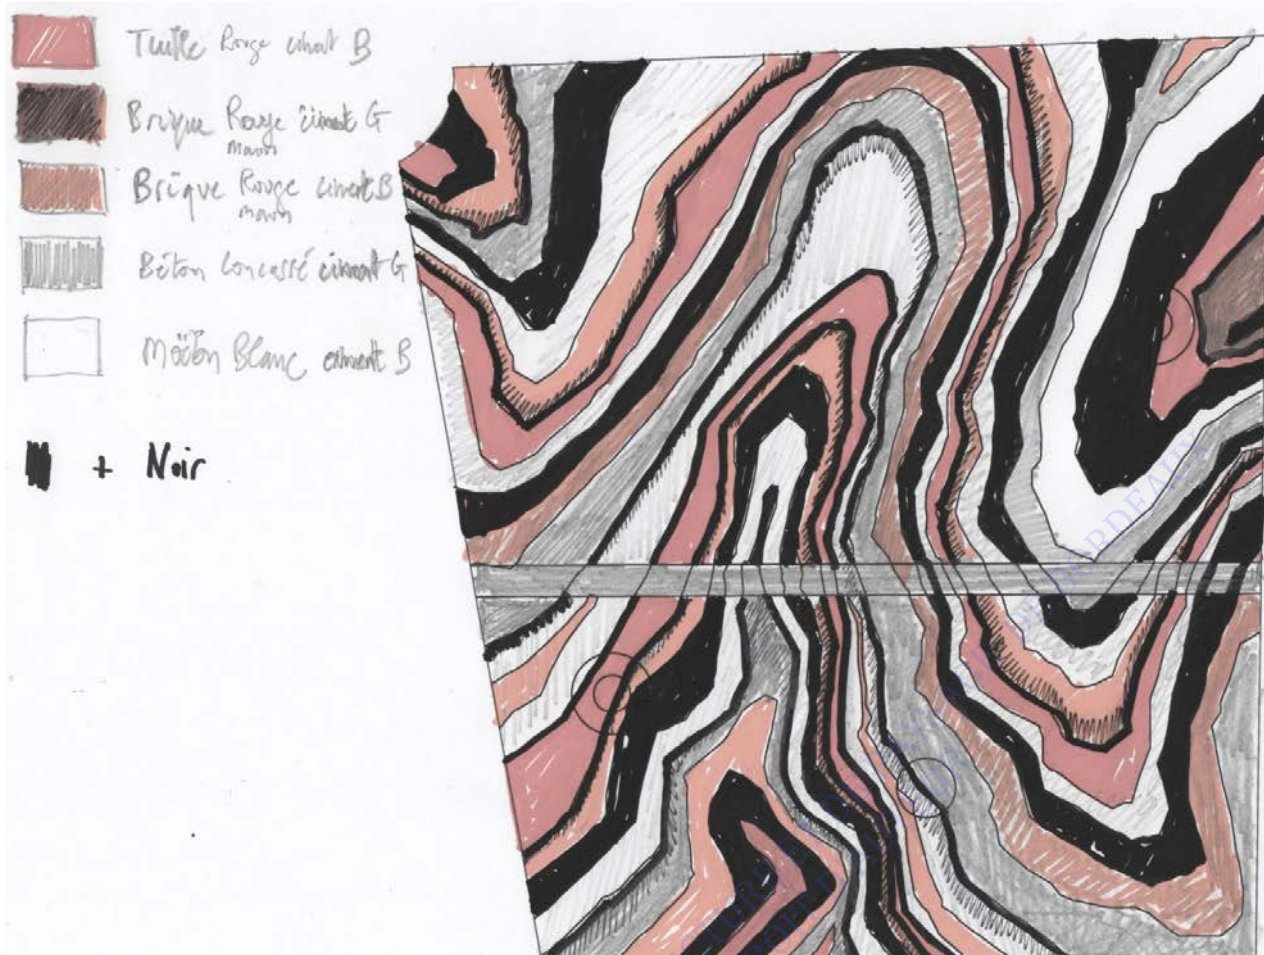 Tuile Rouge ciment B
Brique Rouge ciment G
Maron
Brique Rouge ciment B
Maron
Béton Concassé ciment G
Moëllon Blanc ciment B
+ Noir
DE BORDEAUX